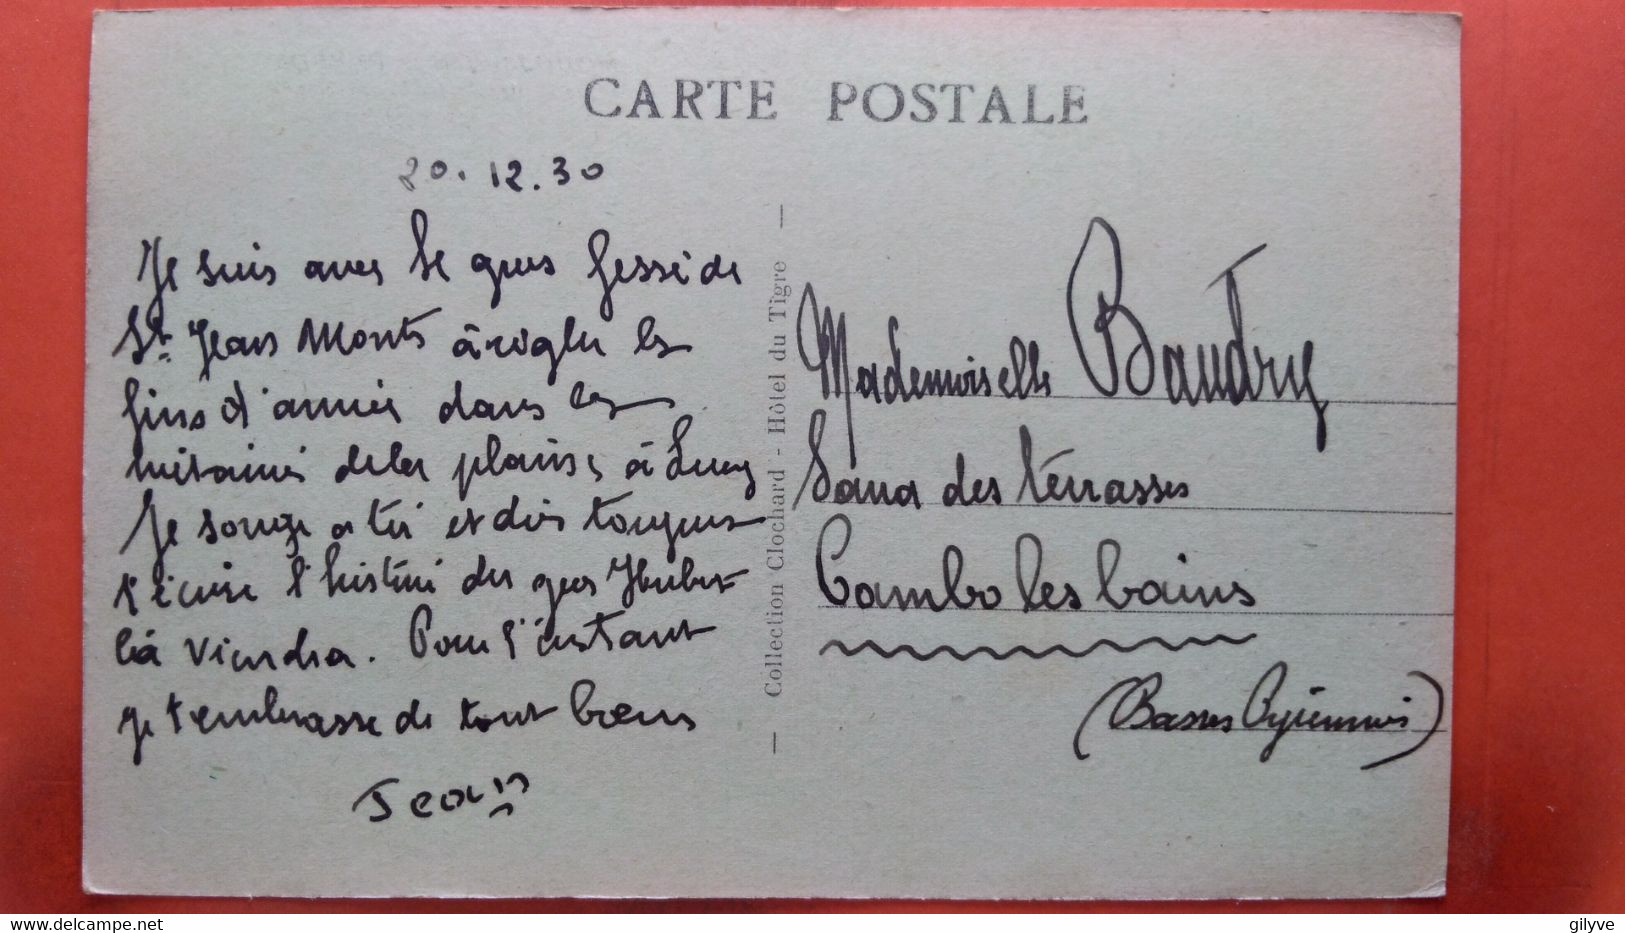 CARTE POSTALE
20.12.30
Je suis avec le gros
St. Jean Monts à régler les
fins d'année dans les
de la plaine, à Luçon
Je songe à toi et dès toujours
t'écrire l'histoire des gros Hubert
là viendra. Pour l'instant
je t'embrasse de tout coeur
Jean
— Collection Clochard - Hôtel du Tigre —
Mademoiselle Baudry
Sana des terrasses
Cambo les bains
(Basses Pyrénnées)
delcampe.net
gilyve